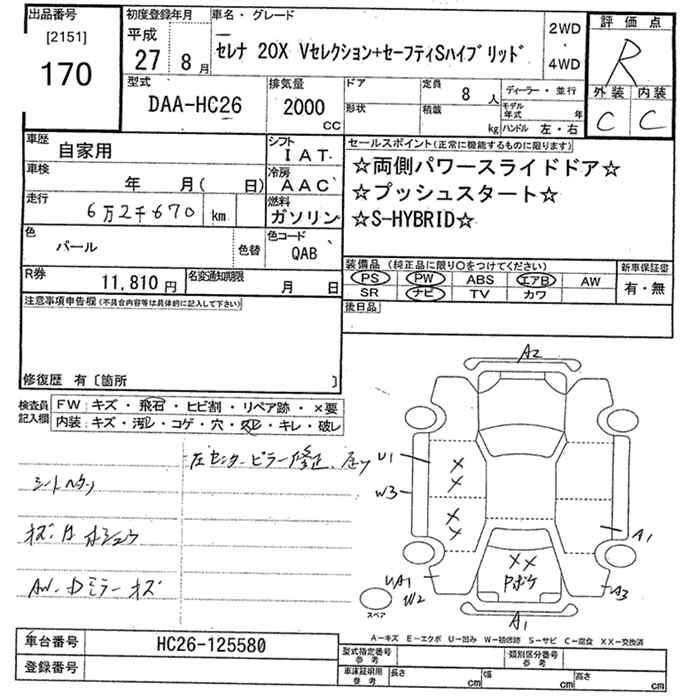 出品番号 初度登録年月 車名・グレード 評価点
[2151] 平成 2WD
170 27 8月 セレナ 20X Vセレクション+セーフティSハイブリッド ・ R
4WD
型式 排気量 ドア 定員 8人 ディーラー・並行 外装 内装
DAA-HC26 2000 cc 形状 積載 kg モデル年式 年 C C
ハンドル 左・右
車歴 自家用 シフト IAT セールスポイント(正常に機能するものに限ります)
車検 年 月( 日) 冷房 AAC ☆両側パワースライドドア☆
走行 6万2千670 km 燃料 ガソリン ☆プッシュスタート☆
色 パール 色替 色コード QAB ☆S-HYBRID☆
R券 11,810円 名変通知期限 月 日 装備品(純正品に限り〇をつけてください) 新車保証書
PS PW ABS エアB AW 有・無
SR ナビ TV カワ
注意事項申告欄(不具合内容等は具体的に記入して下さい) 後日品
修復歴 有〔箇所 〕
検査員記入欄 FW:キズ・飛石・ヒビ割・リペア跡・×要
内装:キズ・汚レ・コゲ・穴・スレ・キレ・破レ
左センターピラー修正
シートヘタリ
AW・Dミラーキズ
A2
U1
W3
××
××
A1
UA1
W2
××
Pボケ
A3
A1
スペア
A-キズ E-エクボ U-凹み W-補修跡 S-サビ C-腐食 XX-交換済
車台番号 HC26-125580 型式指定番号 参考 類別区分番号 参考
登録番号 車庫証明用 参考 長さ cm 幅 cm 高さ cm